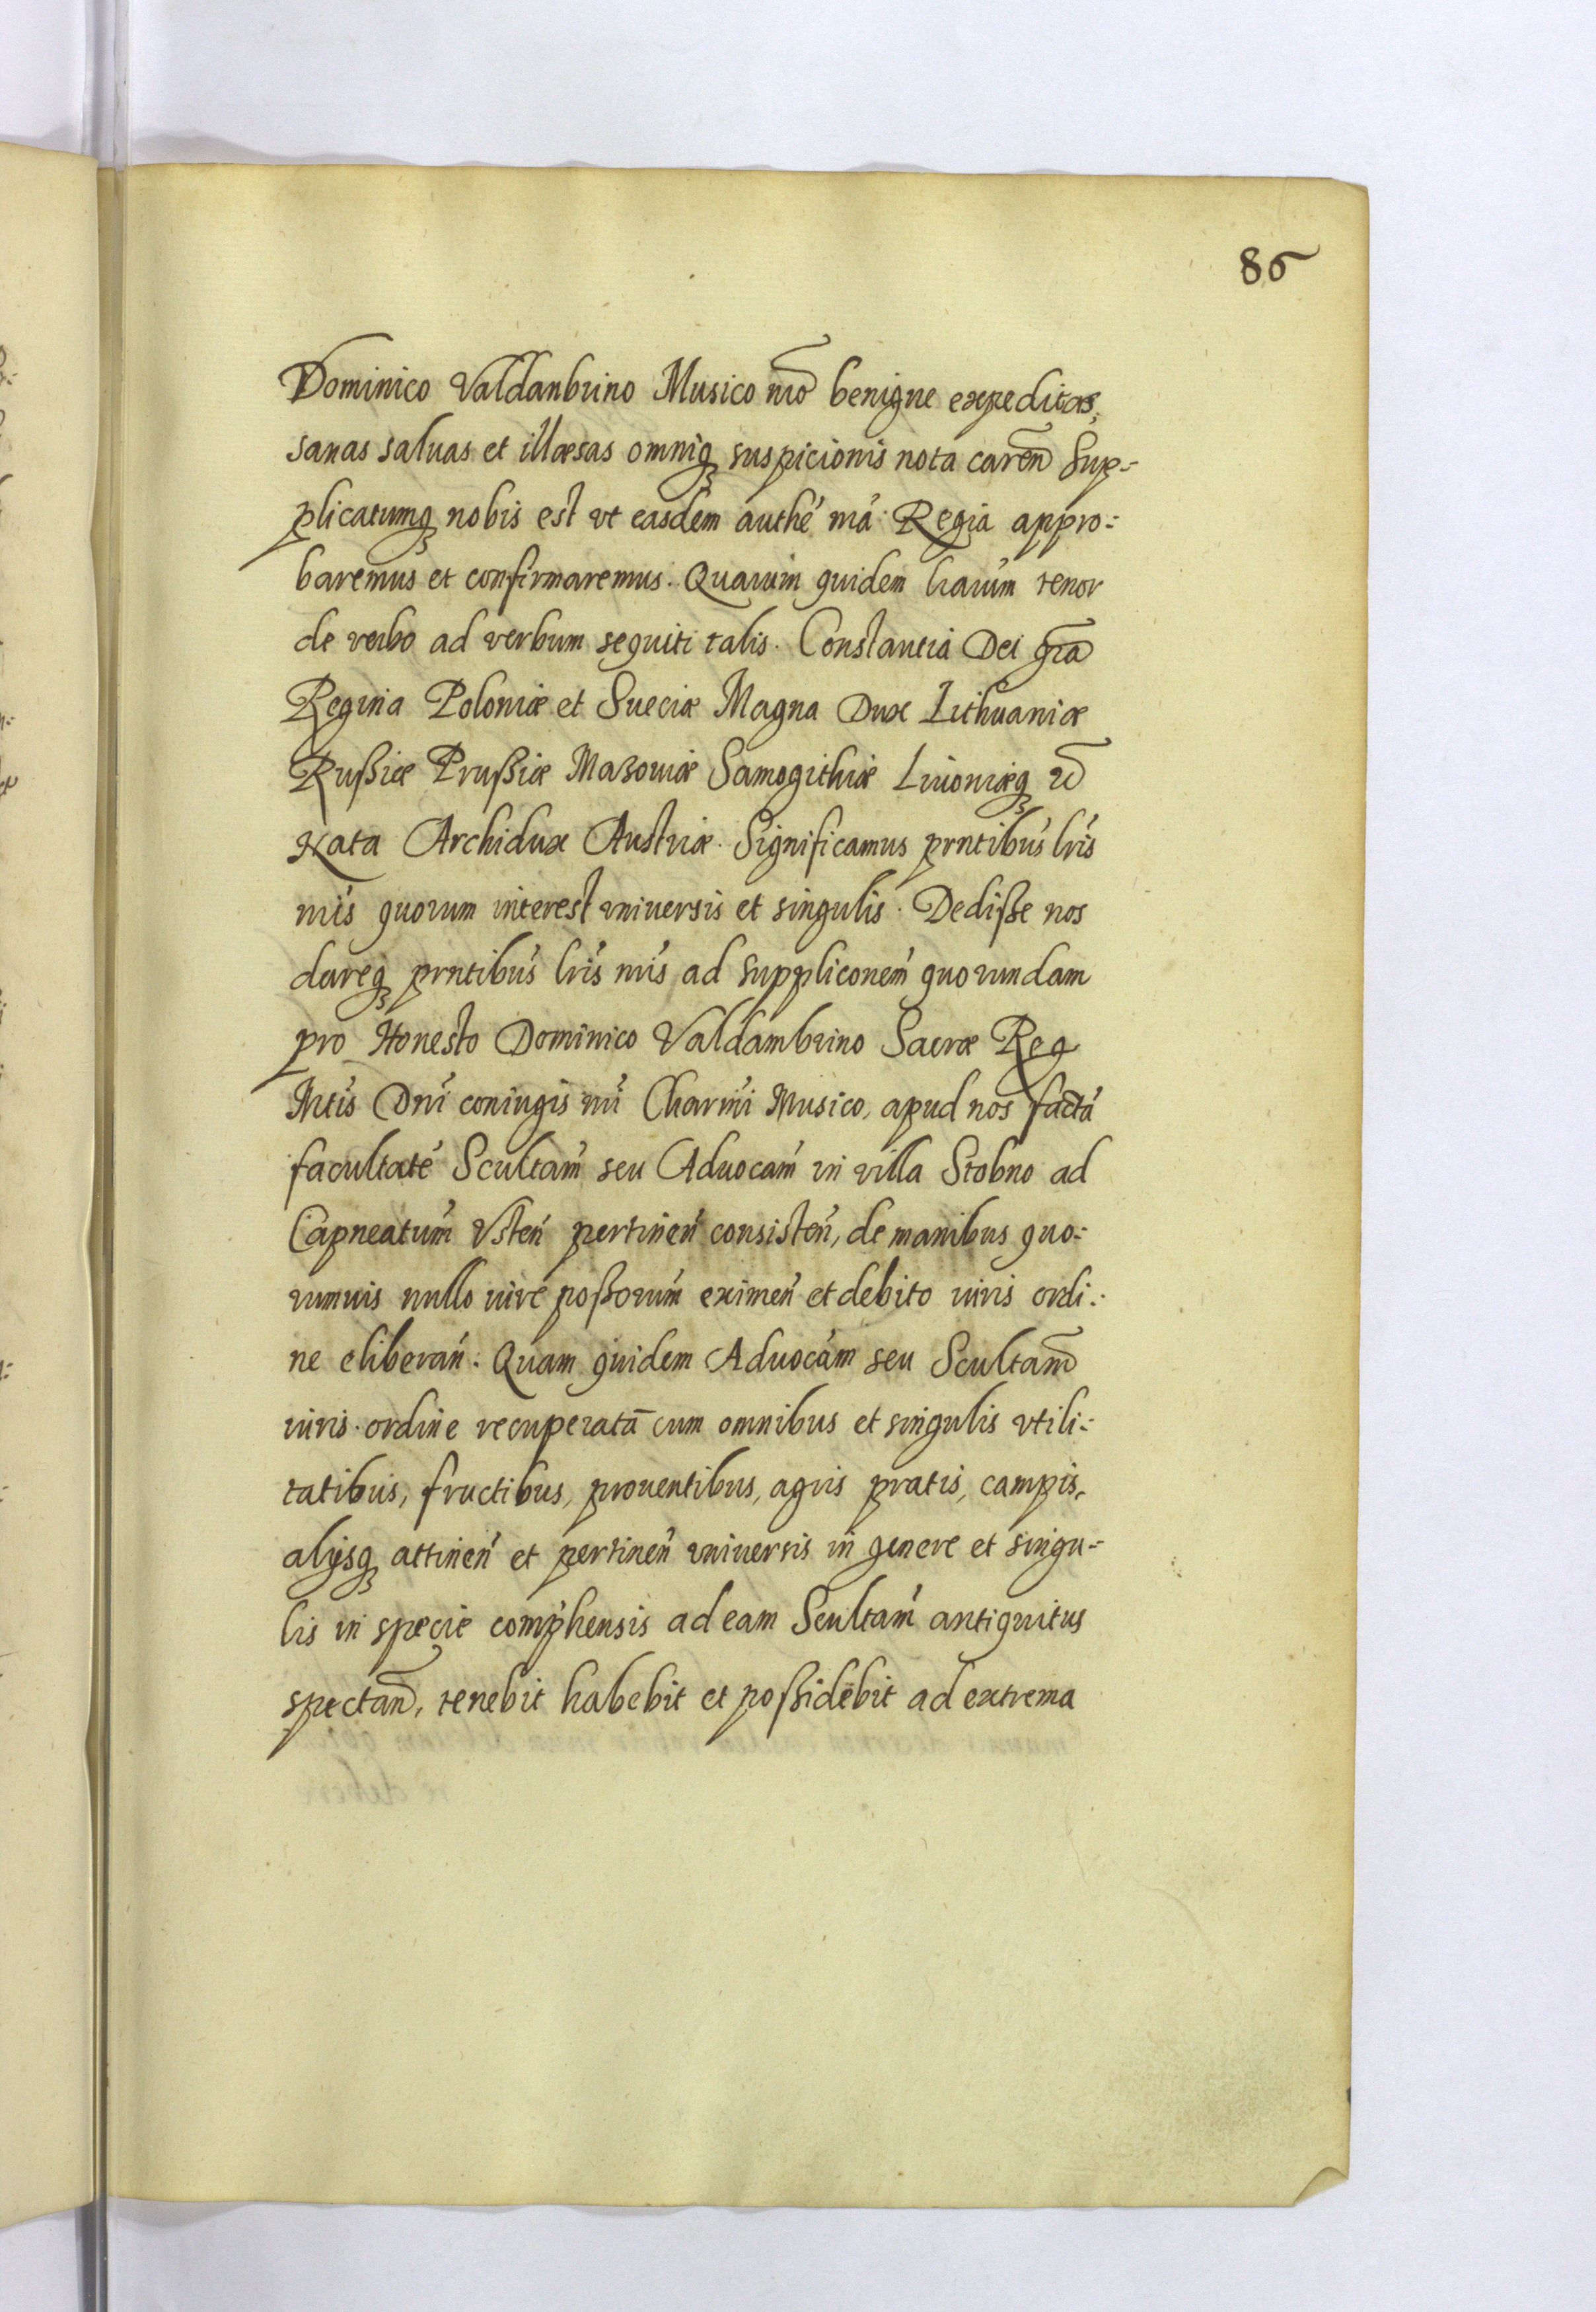 86
Dominico Valdanbrino Musico nrõ benigne expeditas,
sanas saluas et illæsas omniq suspicionis nota careñ Sup-
plicatumq nobis est vt easdem authé ńra Regia appro-
baremus et confirmaremus. Quarum quidem lrarum tenor
de verbo ad verbum sequiti talis. Constantia Dei grã
Regina Poloniæ et Sueciæ Magna Dux Lithuaniæ
Rußiæ Prußiæ Mazouiæ Samogithiæ Liuoniæq
Nata Archidux Austriæ. Significamus prntibus lris
nris quorum interest vniuersis et singulis. Dediße nos
dareq prntibus lris nris ad suppliconem quorundam
pro Honesto Dominico Valdambrino Sacræ Reg
Mtis Dni coniugis nri Charmi Musico, apud nos facta
facultate Scultam seu Aduocam in villa Stobno ad
Capneatum Vsten pertinen consisten, de manibus quo-
rumuis nullo iure poßorum eximen et debito iuris ordi-
ne eliberan: Quam quidem Aduocam seu Scultam
iuris ordine recuperatã cum omnibus et singulis vtili-
tatibus, fructibus, prouentibus, agris pratis, campis,
alijsq attinen et pertinen vniuersis in genere et singu-
lis in specie comphensis ad eam Scultam antiquitus
spectañ, tenebit habebit et poßidebit ad extrema